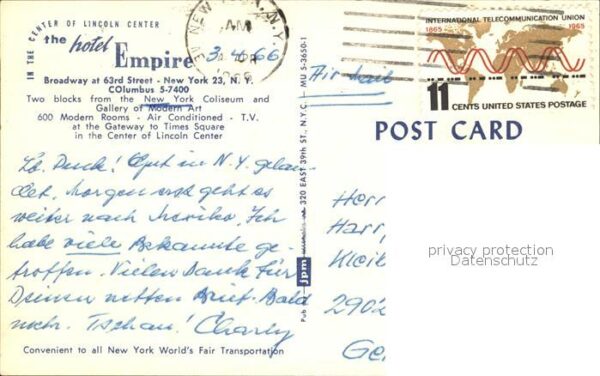 IN THE CENTER OF LINCOLN CENTER
the hotel
Empire
3.4.66
Broadway at 63rd Street - New York 23, N. Y.
COlumbus 5-7400
Two blocks from the New York Coliseum and
Gallery of Modern Art
600 Modern Rooms - Air Conditioned - T.V.
at the Gateway to Times Square
in the Center of Lincoln Center
Gut in N.Y. gelan-
det, Morgen erst geht es
weiter nach Mexiko. Ich
habe viele Bekannte ge-
troffen. Vielen Dank für
Deinen netten Brief. Bald
mehr. Tschau! Charly
Convenient to all New York World's Fair Transportation
320 EAST 39th ST., N.Y.C. - MU 5-3650-1
jpm
Pub
NEW YORK, N.Y.
AM
INTERNATIONAL TELECOMMUNICATION UNION
1865 1965
11 CENTS UNITED STATES POSTAGE
Air Mail
POST CARD
Herr
Harr
Klei
2902
Ge
privacy protection
Datenschutz